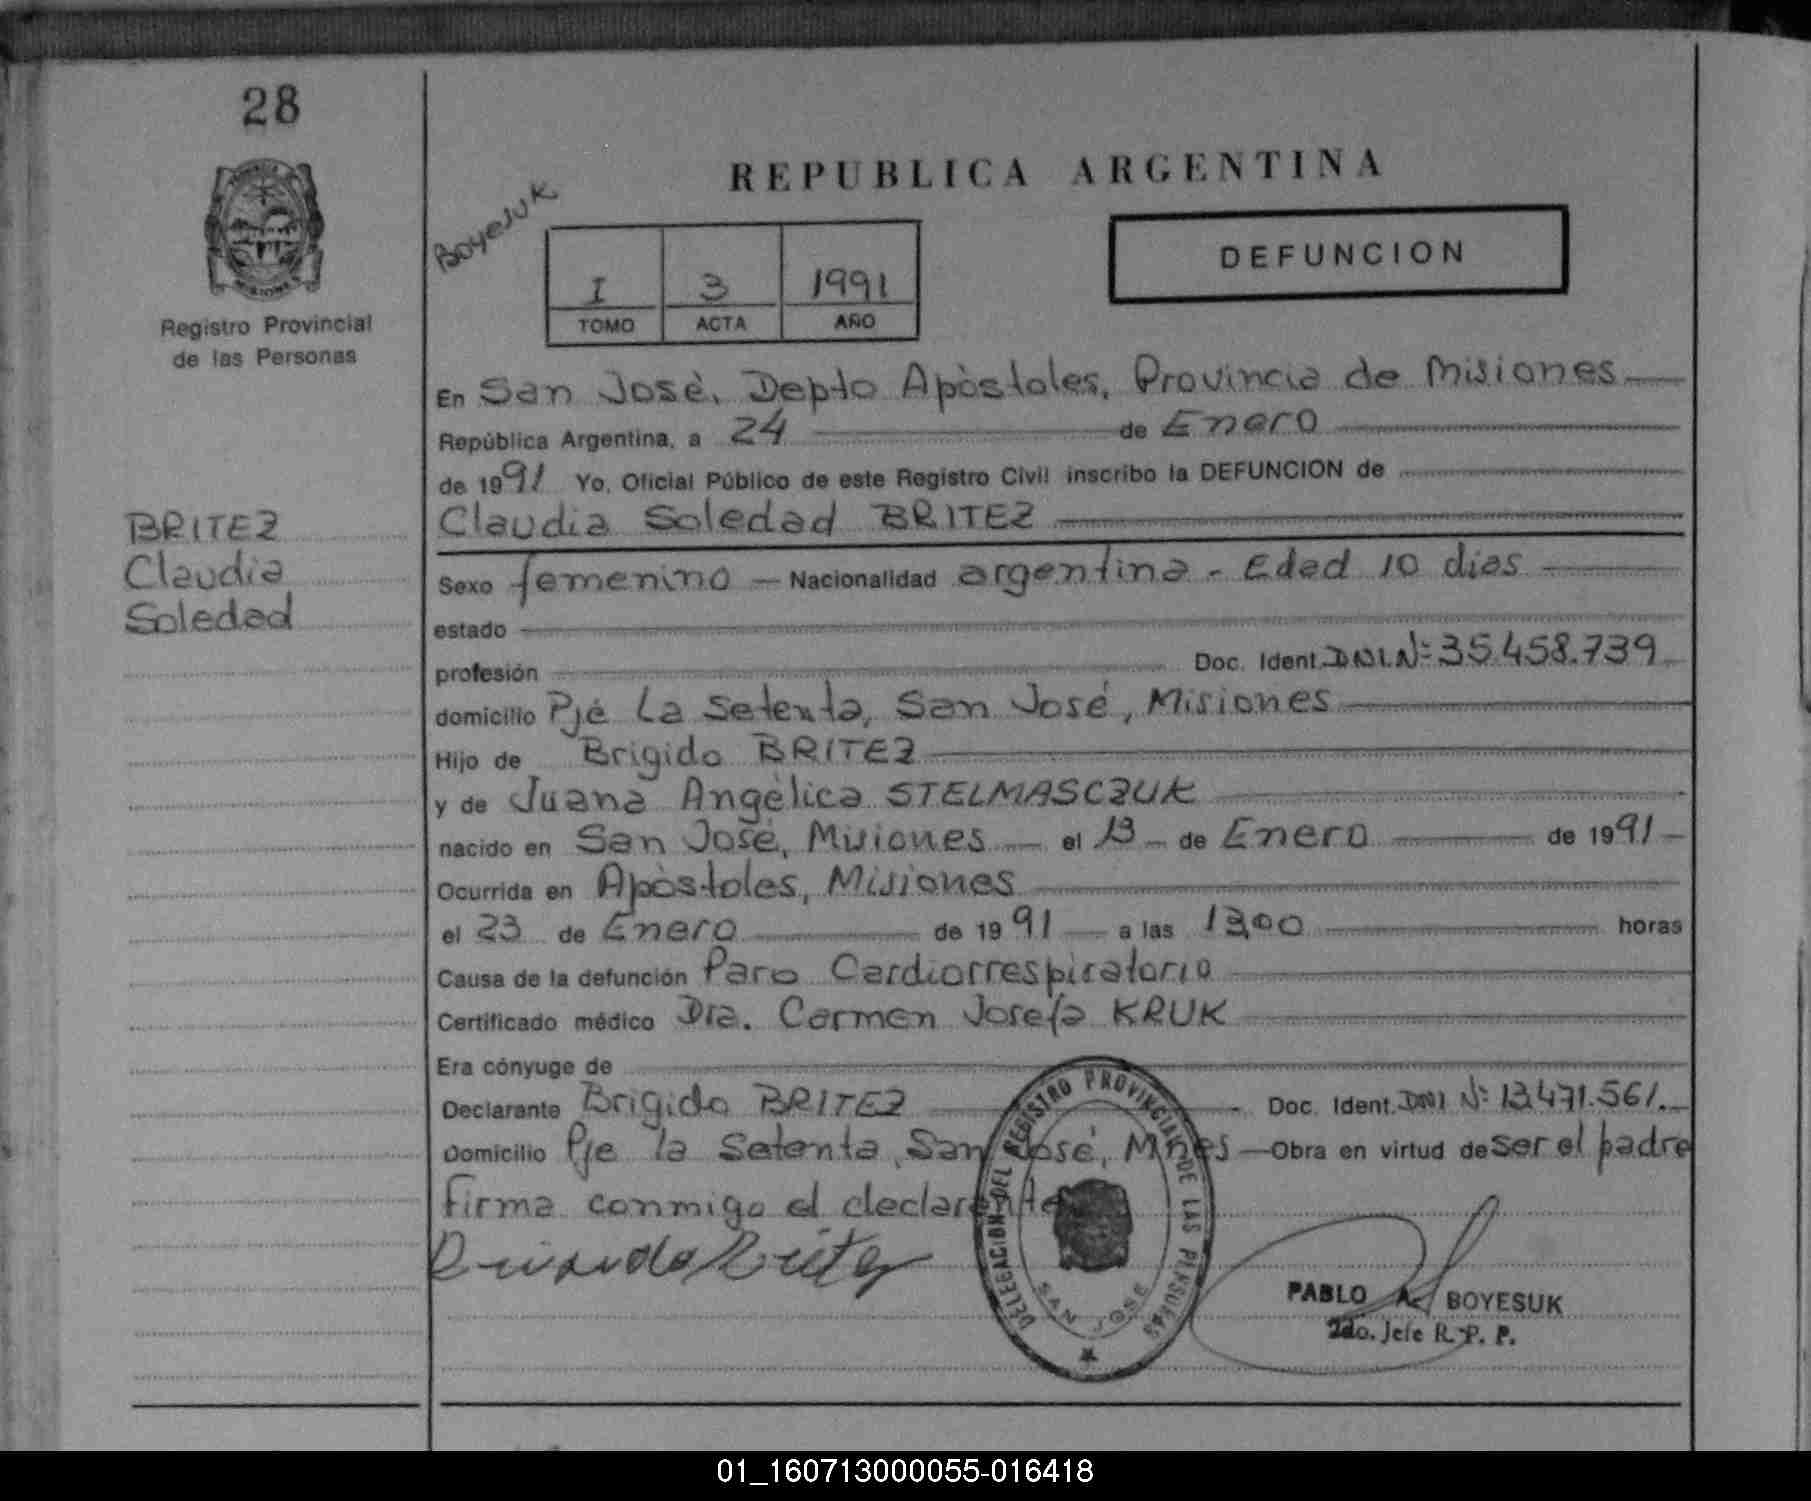 28
REPUBLICA ARGENTINA
Boyesuk
I 3 1991
TOMO ACTA AÑO
DEFUNCION
MISIONES
Registro Provincial
de las Personas
BRITEZ
Claudia
Soledad
En San José, Depto Apòstoles, Provincia de Misiones
República Argentina, a 24 de Enero
de 1991 Yo, Oficial Público de este Registro Civil inscribo la DEFUNCION de
Claudia Soledad BRITEZ
Sexo femenino - Nacionalidad argentina - Edad 10 dias
estado
profesión Doc. Ident. DNI.Nº 35.458.739
domicilio Pjé La Setenta, San José, Misiones
Hijo de Brigido BRITEZ
y de Juana Angèlica STELMASCZUK
nacido en San José, Misiones el 13 de Enero de 1991
Ocurrida en Apòstoles, Misiones
el 23 de Enero de 1991 a las 13,00 horas
Causa de la defunción Paro Cardiorrespiratorio
Certificado médico Dra. Carmen Josefa KRUK
Era cónyuge de
Declarante Brigido BRITEZ Doc. Ident. DNI Nº 13.471.561.
Domicilio Pje la Setenta, San José, Mnes - Obra en virtud de ser el padre
firma conmigo el declarante
DELEGACION DEL REGISTRO PROVINCIAL DE LAS PERSONAS
SAN JOSE
PABLO A. BOYESUK
2do. Jefe R. P. P.
01_160713000055-016418